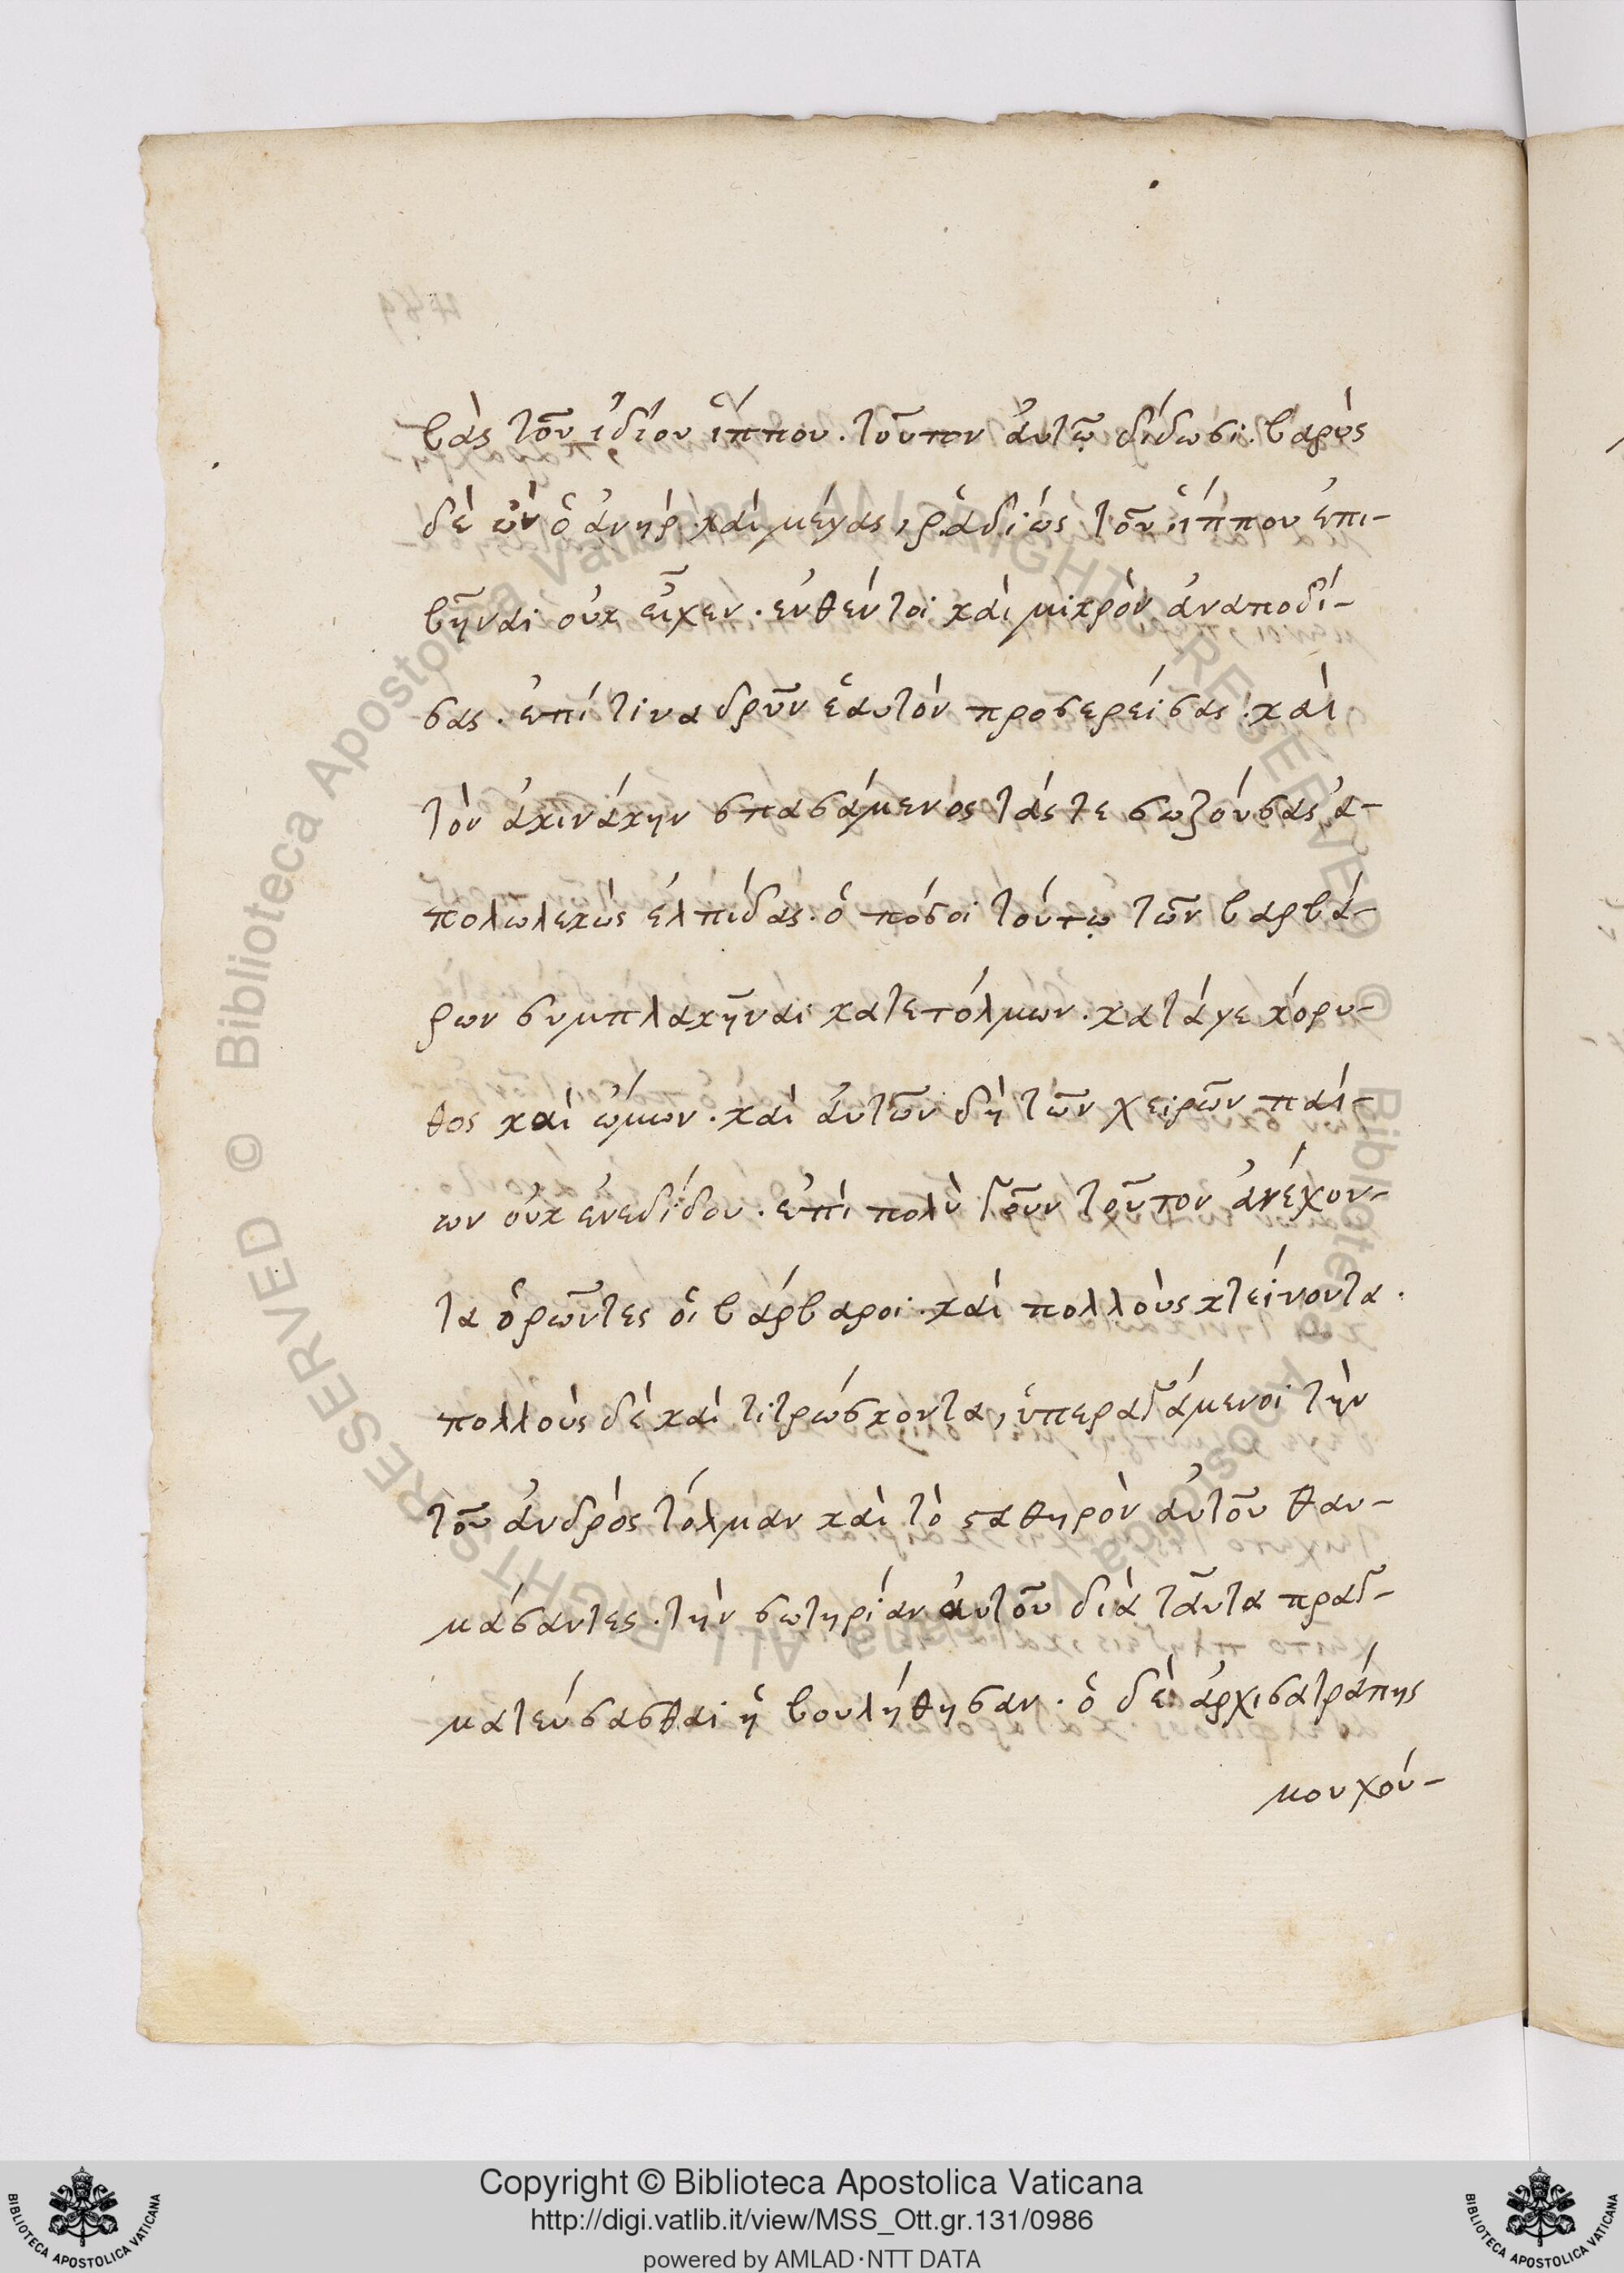 βὰς τοῦ ἰδίου ἵππου. τοῦτον ἀυτῷ δίδωσι. βαρὺς
δὲ ὢν ὁ ἀνὴρ καὶ μέγας, ῥαδίως τοῦ ἵππου ἐπι-
βῆναι οὐκ εἶχεν. ἐνθέντοι καὶ μικρὸν ἀναποδί-
σας. ἐπί τινα δρῦν ἑαυτὸν προσερείσας. καὶ
τὸν ἀκινάκην σπασάμενος τάς τε σωζούσας ἀ-
πολωλεκὼς ἐλπίδας. ὁπόσοι τούτῳ τῶν βαρβά-
ρων συμπλακῆναι κατετόλμων. κατάγε κόρυ-
θος καὶ ὤμων. καὶ ἀυτῶν δὴ τῶν χειρῶν παί-
ων οὐκ ἐνεδίδου. ἐπι πολὺ γοῦν τοῦτον ἀνέχον-
τα ὁρῶντες οἱ βάρβαροι. καὶ πολλοὺς κτείνοντα.
πολλοὺς δὲ καὶ τιτρώσκοντα, ὑπεραγάμενοι τὴν
τοῦ ἀνδρὸς τόλμαν καὶ τὸ σταθηρὸν ἀυτοῦ θαυ-
μάσαντες. τὴν σωτηρίαν ἀυτοῦ διὰ ταῦτα πραγ-
ματεύσασθαι ἡβουλήθησαν. ὁ δὲ ἀρχισατράπης
μουχού-
Copyright © Biblioteca Apostolica Vaticana
http://digi.vatlib.it/view/MSS_Ott.gr.131/0986
powered by AMLAD·NTT DATA